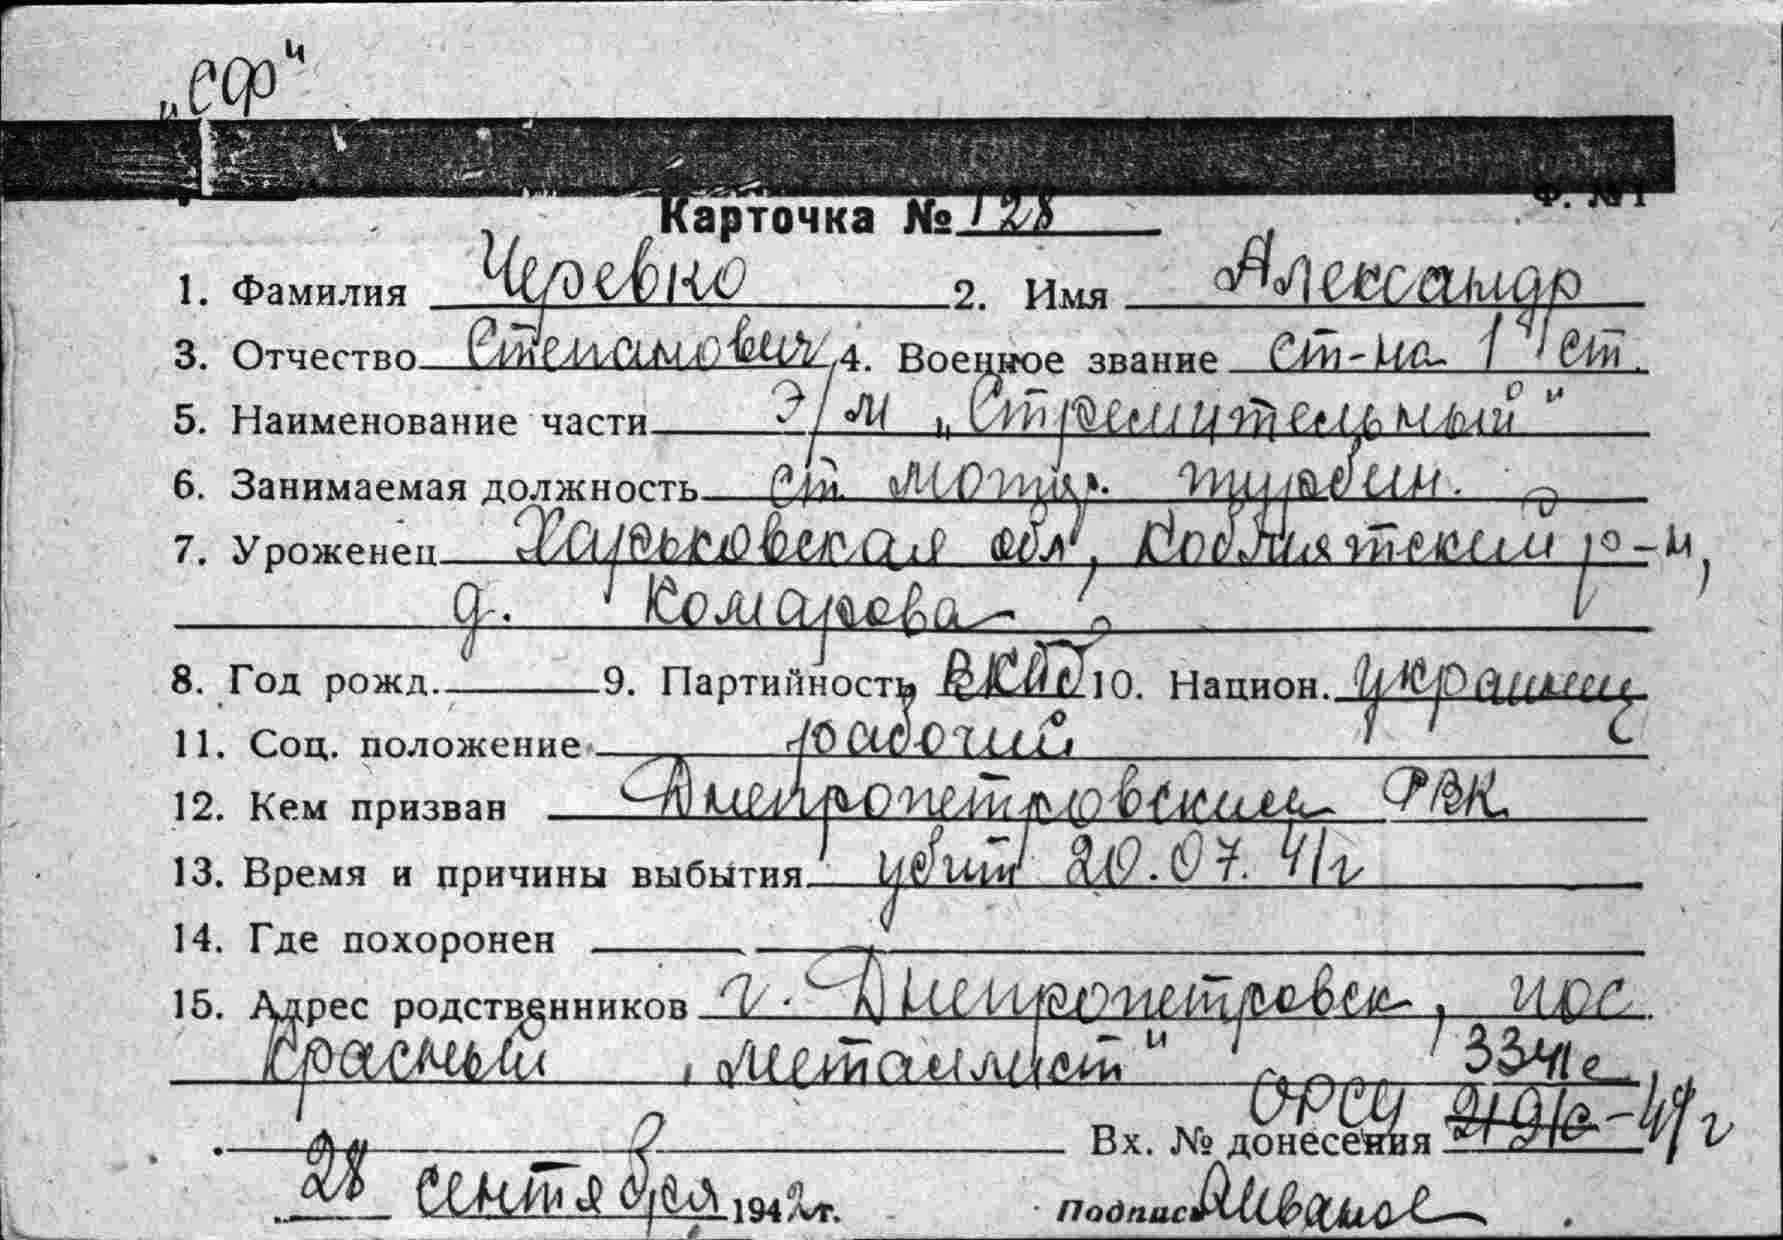 „СФ"
Ф. №1
Карточка № 128
1. Фамилия Черевко 2. Имя Александр
3. Отчество Степанович 4. Военное звание ст-на 1й ст.
5. Наименование части Э/М „Стремительный"
6. Занимаемая должность ст. мотор. турбин.
7. Уроженец Харьковская обл, Кобелятский р-н,
д. Комарова
8. Год рожд. 9. Партийность ВКПб 10. Национ. украинец
11. Соц. положение рабочий
12. Кем призван Днепропетровским РВК
13. Время и причины выбытия убит 20.07.41г
14. Где похоронен
15. Адрес родственников г. Днепропетровск, пос.
красный „металлист" 334с
ОРСУ
Вх. № донесения -41г
28 сентября 1942г. Подпись